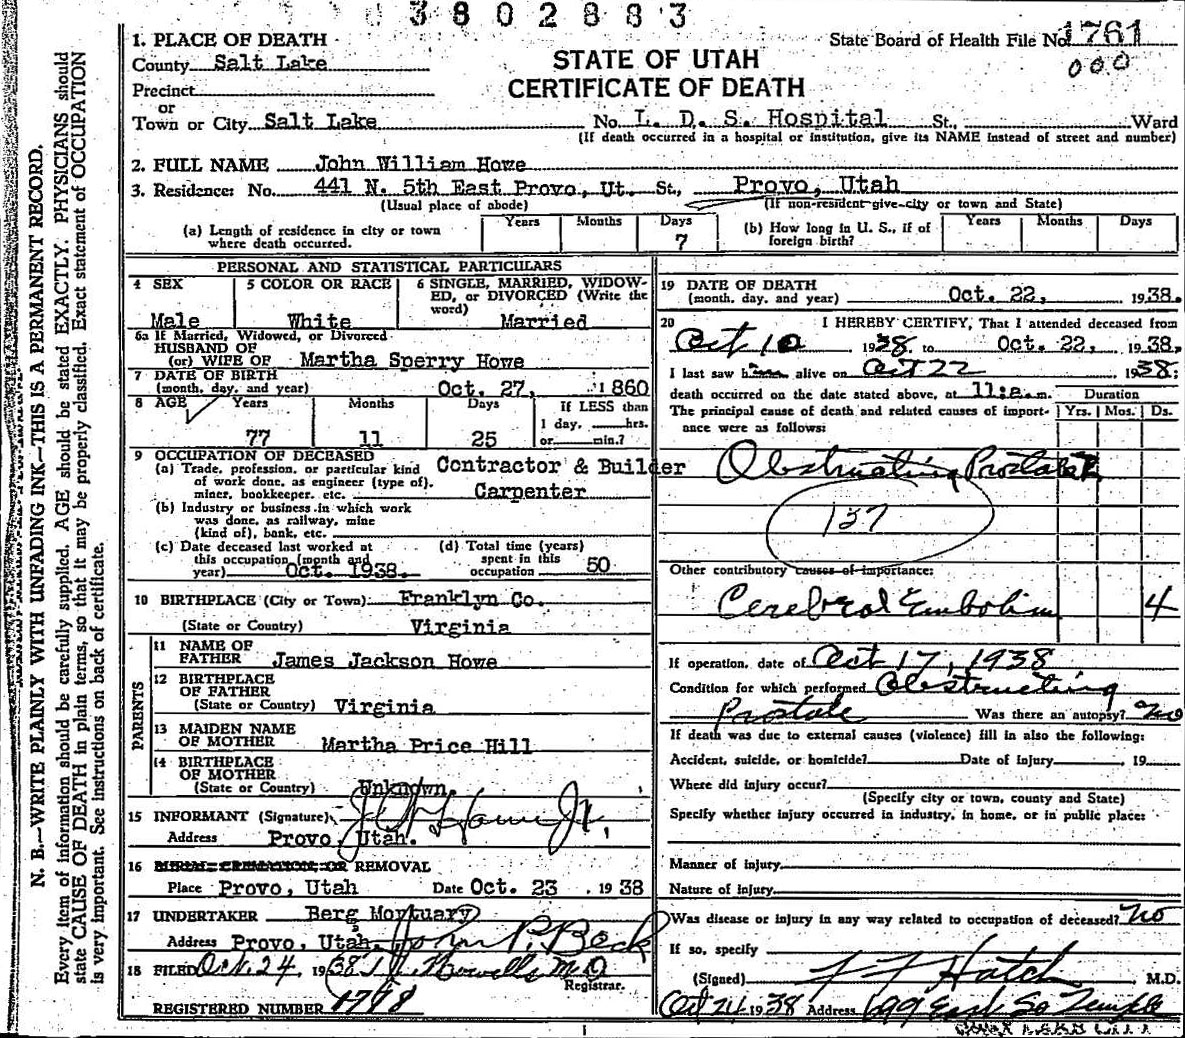 3802883
1. PLACE OF DEATH
State Board of Health File No. 1761
000
County Salt Lake
STATE OF UTAH
Precinct
CERTIFICATE OF DEATH
or
Town or City Salt Lake No. L. D. S. Hospital St., Ward
(If death occurred in a hospital or institution, give its NAME instead of street and number)
2. FULL NAME John William Howe
3. Residence: No. 441 N. 5th East Provo, Ut. St., Provo, Utah
(Usual place of abode) (If non-resident give city or town and State)
(a) Length of residence in city or town where death occurred. Years Months Days 7
(b) How long in U. S., if of foreign birth? Years Months Days
PERSONAL AND STATISTICAL PARTICULARS
4 SEX Male
5 COLOR OR RACE White
6 SINGLE, MARRIED, WIDOWED, or DIVORCED (Write the word) Married
6a If Married, Widowed, or Divorced
HUSBAND OF
(or) WIFE OF Martha Sperry Howe
7 DATE OF BIRTH
(month, day, and year) Oct. 27, 1860
8 AGE Years Months Days If LESS than
77 11 25 1 day, hrs.
or min.?
9 OCCUPATION OF DECEASED
(a) Trade, profession, or particular kind Contractor & Builder
of work done, as engineer (type of),
miner, bookkeeper, etc. Carpenter
(b) Industry or business in which work
was done, as railway, mine
(kind of), bank, etc.
(c) Date deceased last worked at
this occupation (month and
year) Oct. 1938.
(d) Total time (years)
spent in this
occupation 50
10 BIRTHPLACE (City or Town) Franklyn Co.
(State or Country) Virginia
PARENTS
11 NAME OF
FATHER James Jackson Howe
12 BIRTHPLACE
OF FATHER
(State or Country) Virginia
13 MAIDEN NAME
OF MOTHER Martha Price Hill
14 BIRTHPLACE
OF MOTHER
(State or Country) Unknown
15 INFORMANT (Signature) Howe Jr.
Address Provo, Utah.
16 BURIAL, CREMATION, OR REMOVAL
Place Provo, Utah Date Oct. 23, 1938
17 UNDERTAKER Berg Mortuary
Address Provo, Utah. John P. Beck
18 FILED Oct. 24, 1938 Howells M D
Registrar.
REGISTERED NUMBER 1778
19 DATE OF DEATH
(month, day, and year) Oct. 22, 1938.
20 I HEREBY CERTIFY, That I attended deceased from
Oct 10 1938 to Oct. 22, 1938,
I last saw him alive on Oct 22 1938;
death occurred on the date stated above, at 11:a.m.
The principal cause of death and related causes of importance were as follows:
Duration
Yrs. Mos. Ds.
Obstructing Prostate
137
Other contributory causes of importance:
Cerebral Embolism 4
If operation, date of Oct 17, 1938
Condition for which performed Obstructing
Prostate Was there an autopsy? No
If death was due to external causes (violence) fill in also the following:
Accident, suicide, or homicide? Date of injury , 19
Where did injury occur?
(Specify city or town, county and State)
Specify whether injury occurred in industry, in home, or in public place:
Manner of injury
Nature of injury
Was disease or injury in any way related to occupation of deceased? No
If so, specify
(Signed) Hatch M.D.
Oct 24 1938 Address 699 East So Temple
SALT LAKE CITY
N. B.—WRITE PLAINLY WITH UNFADING INK—THIS IS A PERMANENT RECORD.
Every item of information should be carefully supplied. AGE should be stated EXACTLY. PHYSICIANS should
state CAUSE OF DEATH in plain terms, so that it may be properly classified. Exact statement of OCCUPATION
is very important. See instructions on back of certificate.